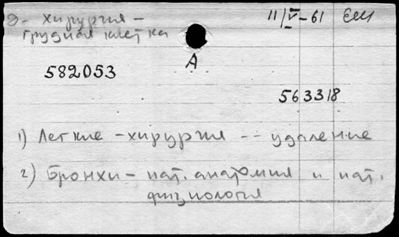 Э - хирургия -
грудная клетка
11/V-61
А
582053
563318
1) Легкие - хирургия -- удаление
2) Бронхи - пат. анатомия и пат.
физиология